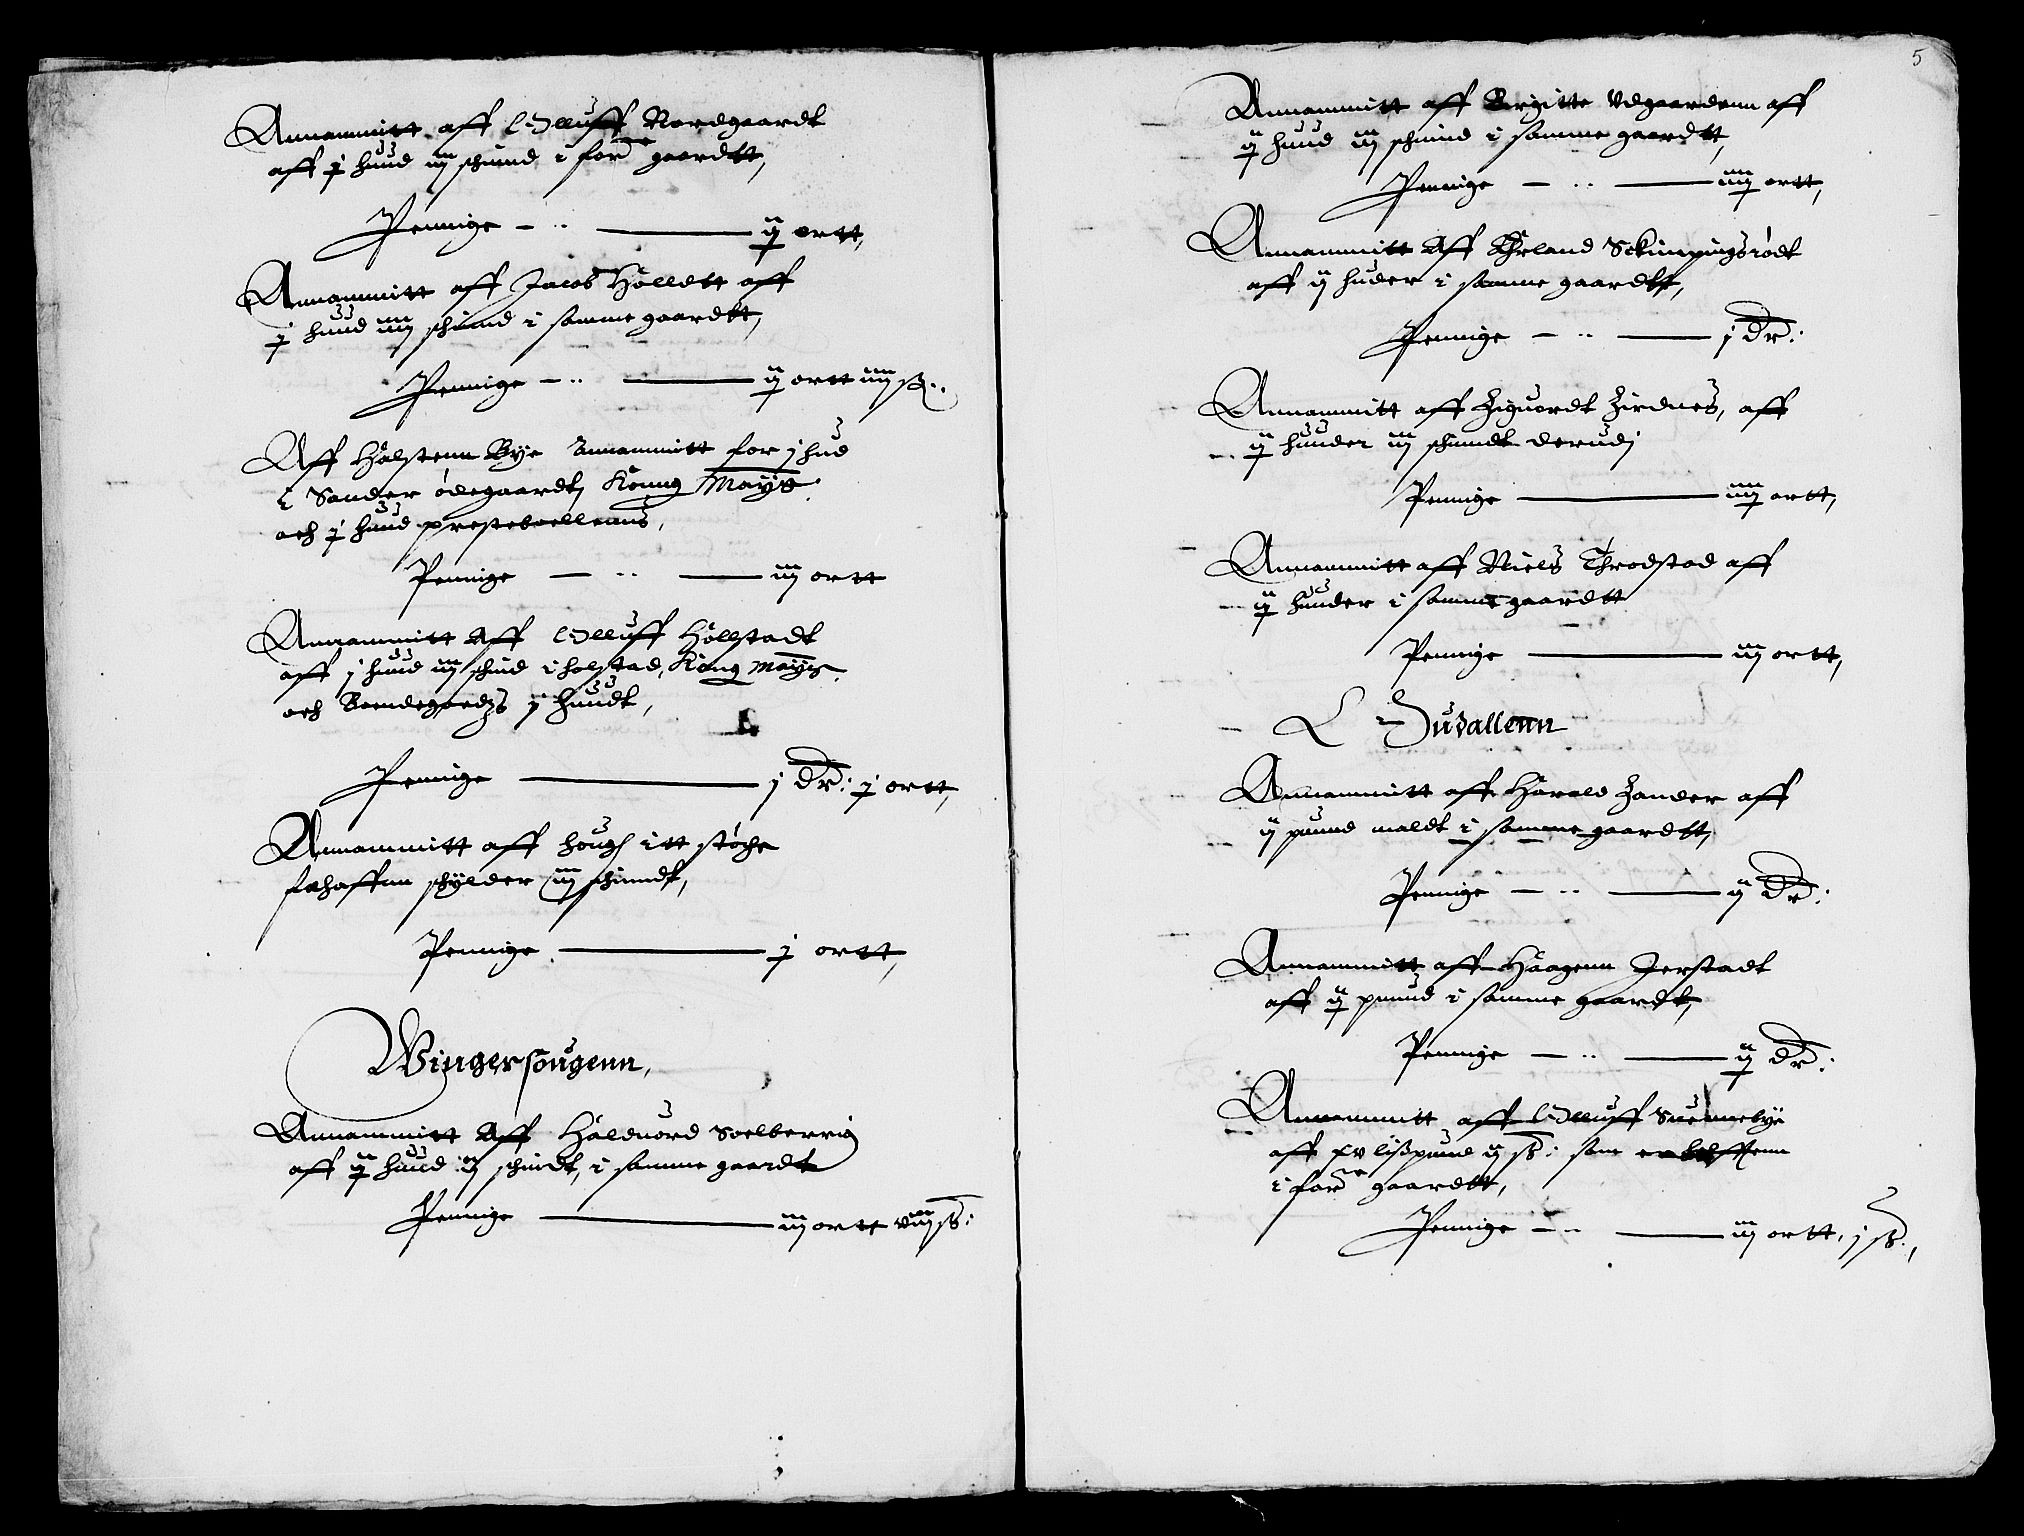 Annammitt aff Olluff Nordgaardt
aff j huud iiij schiind i for:ne gaardtt,
Pennige — .. — ij ortt,
Annammitt aff Jacob Hollett aff
j huud iiij schiind i samme gaardtt,
Pennige — .. — ij ortt iiij sk:.
Aff Holstenn Bye Annammitt for j hud
i Sander ødegaardtt Konng Mayts:
och j huud prestebolleans,
Pennige — .. — iij ortt
Annammitt Aff Olluff Hollstadt
aff j huud iij schind i holstad, Kong Mayts.
och Bondegodts j huudt,
Pennige — j dr: j ortt,
Annammitt aff hough itt støche
schylder iij schindt,
Pennige — j ortt,
Wingersougenn,
Annammitt Aff Haluord Soelberrig
aff ij huud ij schindt, i samme gaardt
Pennige — iij ortt viij sk:
5
Annammitt aff Birgitte Vdgaardenn aff
ij huud iij schiind i samme gaardtt,
Pennige — .. — iiij ortt,
Annammitt Aff Erland Sckinpingsrødt
aff ij huder i samme gaardtt,
Pennige — .. — j dr:
Annammitt aff Ziguordt Zirdnes, aff
ij huuder iij schindt derudj
Pennige — iiij ortt,
Annammitt aff Niels Throdstad aff
ij huuder i samme gaardtt
Pennige — iij ortt,
Annammitt aff Harald Zander aff
ij puund maldt i samme gaardtt,
Pennige — .. — ij dr:
Annammitt aff Haagenn Jerstadt
aff ij puund i samme gaardt,
Pennige — .. — ij dr:
Annammitt aff Olluff Suennebye
aff xv lispuund ij sk: som
i for:ne gaardtt,
Pennige — .. — iij ortt, j sk:,